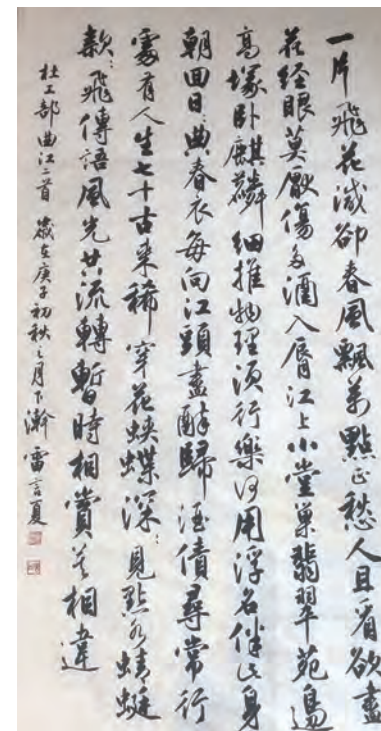 一片飛花減卻春風飄萬點正愁人且看欲盡
花經眼莫厭傷多酒入脣江上小堂巢翡翠苑邊
高塚臥麒麟細推物理須行樂何用浮名伴此身
朝回日〻典春衣每向江頭盡醉歸酒債尋常行
處有人生七十古來稀穿花蛺蝶深〻見點水蜻蜓
款〻飛傳語風光共流轉暫時相賞莫相違
杜工部曲江二首 歲在庚子初秋之月下澣 雷言夏